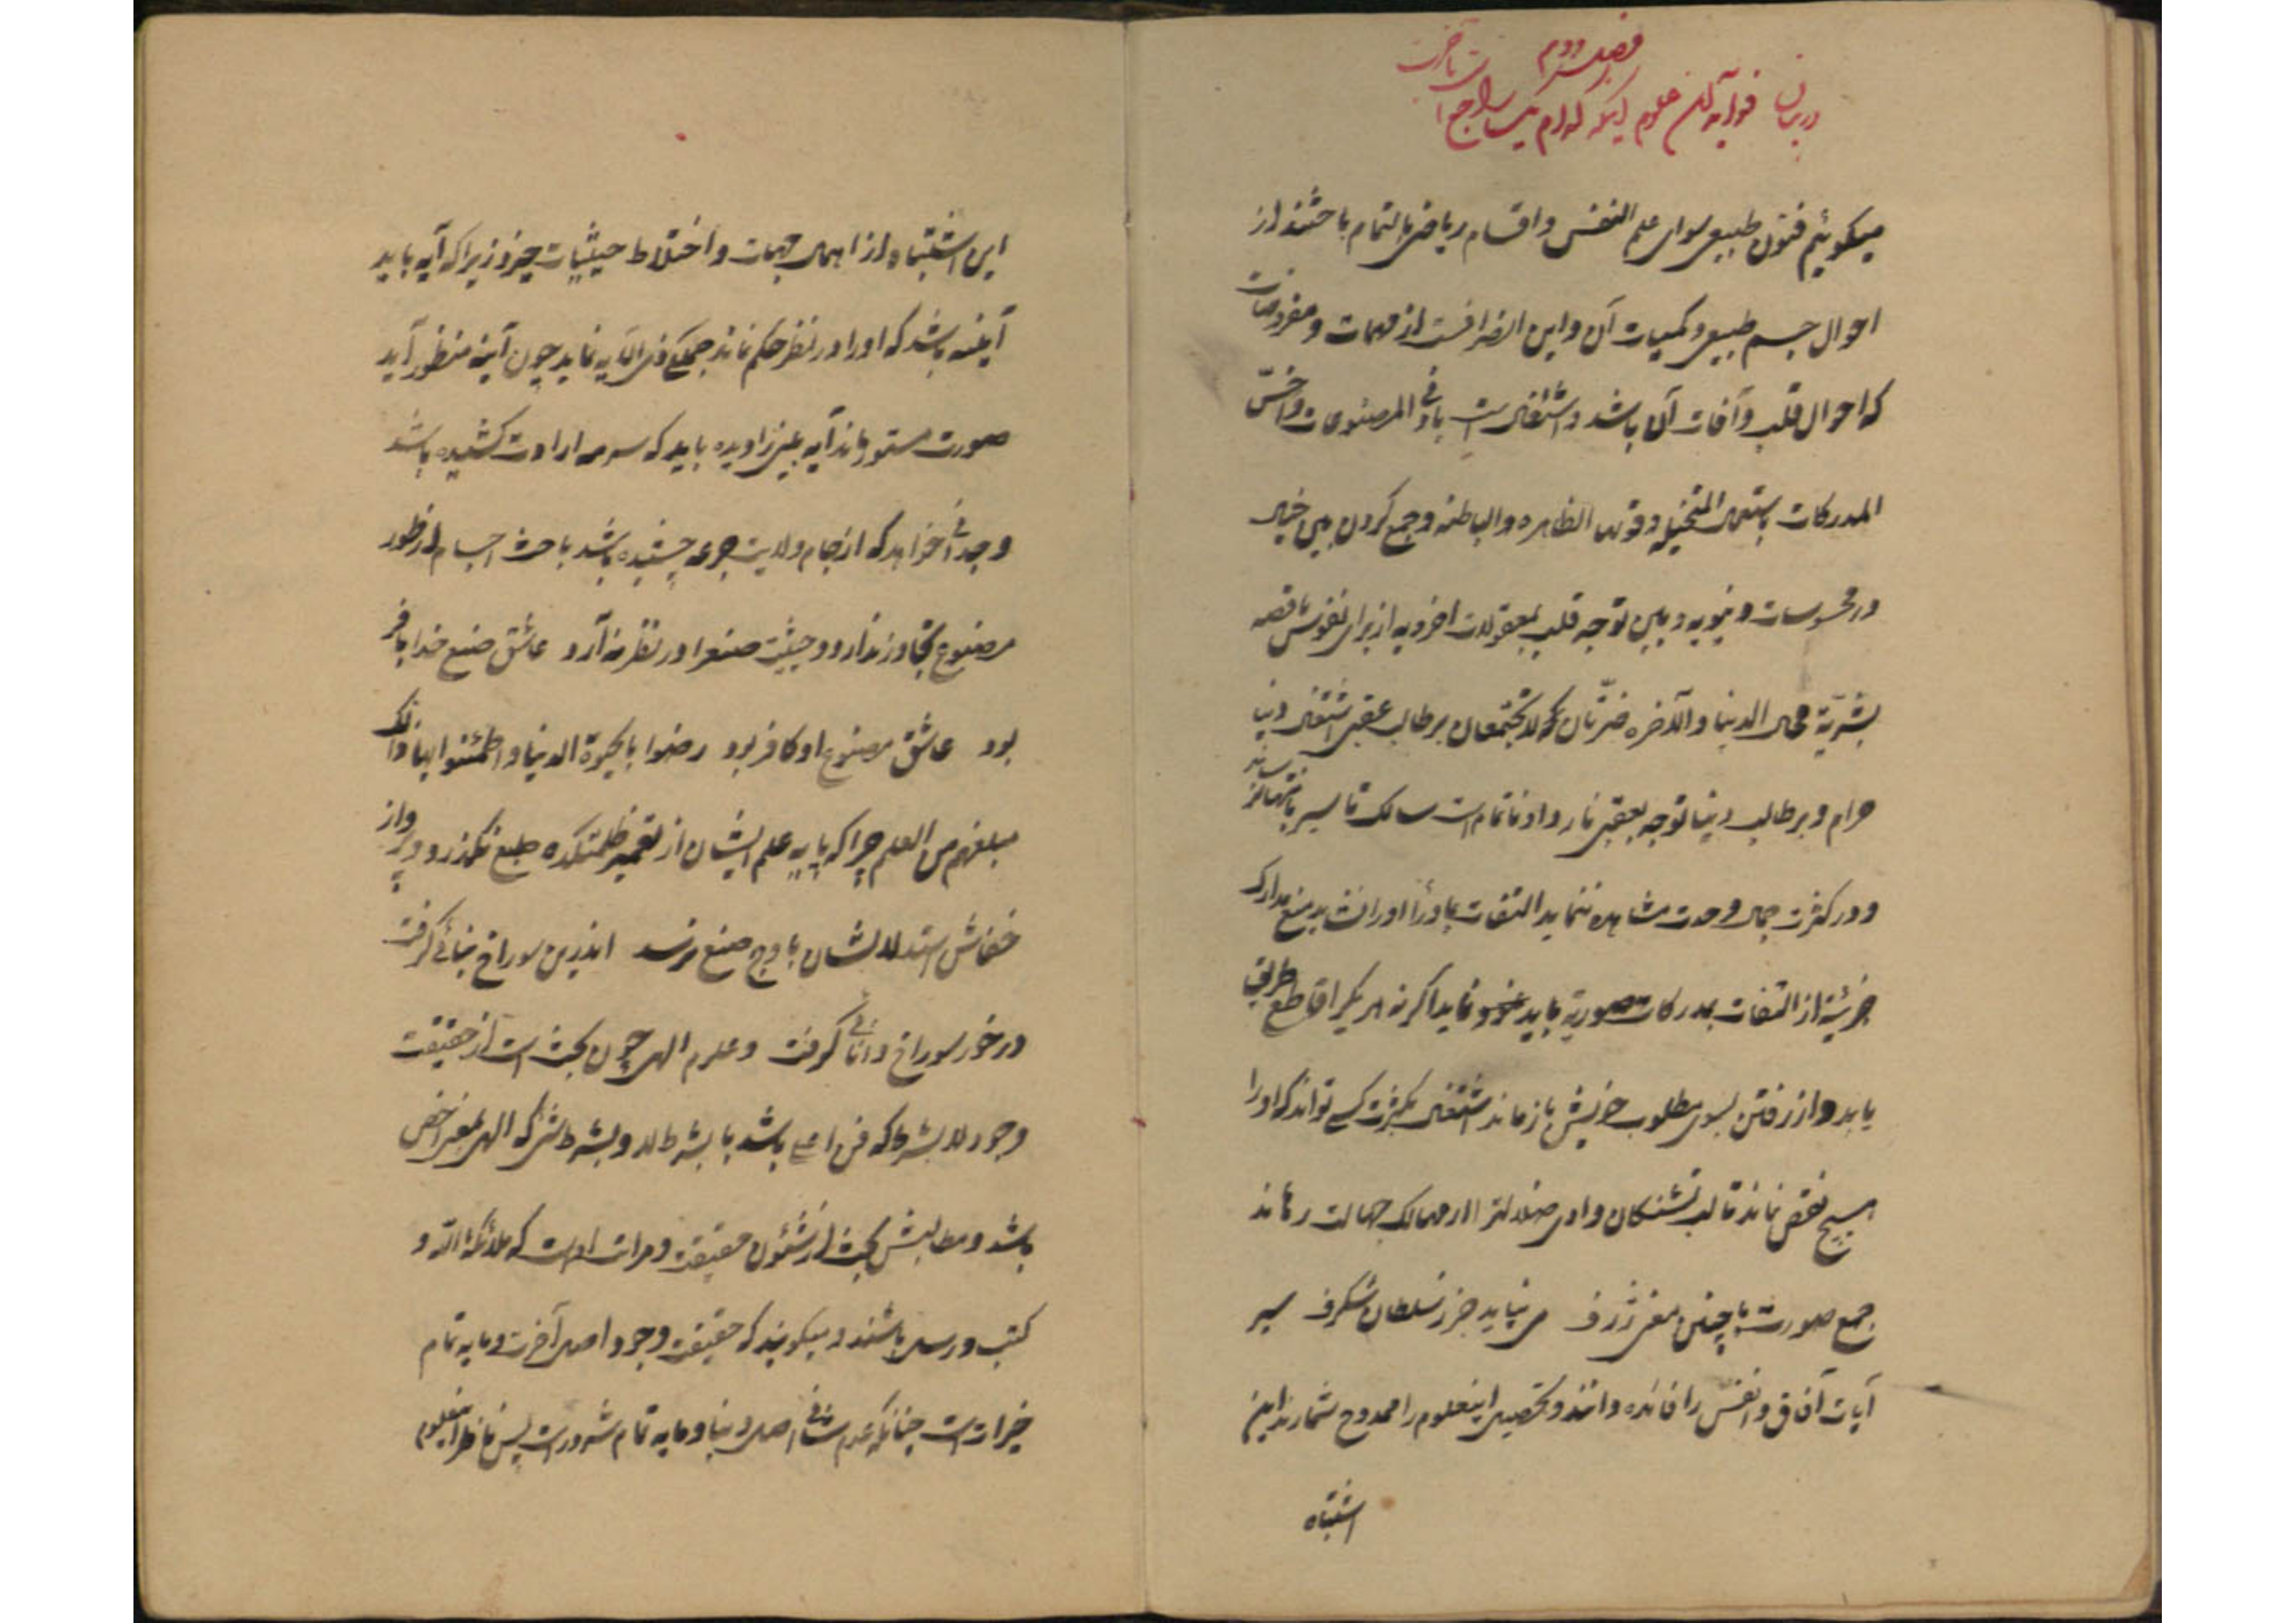 فصل دوم
در بیان فواید آن علوم اینکه کدام یک راجع است بآخرت
میگوئیم فنون طبیعی سوای علم النفس و اقسام ریاضی بالتمام باحثند از
احوال جسم طبیعی و کمیات آن و این انصرافست از مهمات و مفروضات
که احوال قلب و آفات آن باشد و اشتغال است بادنی المصنوعات و اخسّ
المدرکات باستعمال المتخیله و قوتها الظاهره و الباطنه و جمع کردن بین خیال
در محسوسات دنیویه و بین توجه قلب بمعقولات اخرویه از برای نفوس ناقصه
بشریّة محال الدنیا و الآخره ضرّتان لا تجتمعان بر طالب عقبی اشتغال دنیا
حرام و بر طالب دنیا توجه بعقبی ناروا و ناتمام است سالک تا سیر بانتها نرساند
و در کثرت جمال وحدت مشاهده ننماید التفات بماوراء او را نشاید منع مدارک
جزئیة از التفات بمدرکات صوریة باید نماید اگر نه هر یکی را قاطع طریق
یابد و از رفتن بسوی مطلوب خویش باز ماند اشتغال بکثرت کسی تواند که او را
هیچ نقص نماند تا لب تشنگان وادی ضلالت را از مهالک جهالت رهاند
جمع صورت با چنین معنی ژرف می نیاید جز ز سلطان شگرف سیر
آیات آفاق و انفس را فائده دانند و تحصیل اینعلوم را ممدوح شمارند این
اشتباه
این اشتباه از اهمال جهات و اختلاط حیثیات خیزد زیرا که آیه باید
آینه باشد که او را در نظر حکم نماند حکایت ذی الآیه نماید چون آینه منظور آید
صورت مستور ماند آیه بین را دیده باید که سرمه ارادت کشیده باشد
وجدانی خواهد که از جام ولایت جرعه چشیده باشد باحث اجسام از طور
مصنوع تجاوز ندارد و حیثیت صنع را در نظر نه آرد عاشق صنع خدا با فر
بود عاشق مصنوع او کافر بود رضوا بالحیوة الدنیا و اطمئنوا بها ذلک
مبلغهم من العلم چرا که پایه علم ایشان از تعمیر ظلمتکده طبع نگذرد و پرواز
خفاش استدلالشان باوج صنع نرسد اندرین سوراخ بنائی گرفت
در خور سوراخ دانائی گرفت و علوم الهی چون بحث است از حقیقت
وجود لا بشرط که فن اعلی باشد یا بشرط لا و بشرط شئ که الهی بمعنی اخص
باشد و مطالبش بحث از شئون حقیقت و مراتب اوست که ملائکة الله و
کتب و رسل باشند و میگویند که حقیقت وجود اصل آخرت و مایه تمام
خیرات است چنانکه عدم منشأ اصل دنیا و مایه تمام شرور است پس ناظر اینعلوم